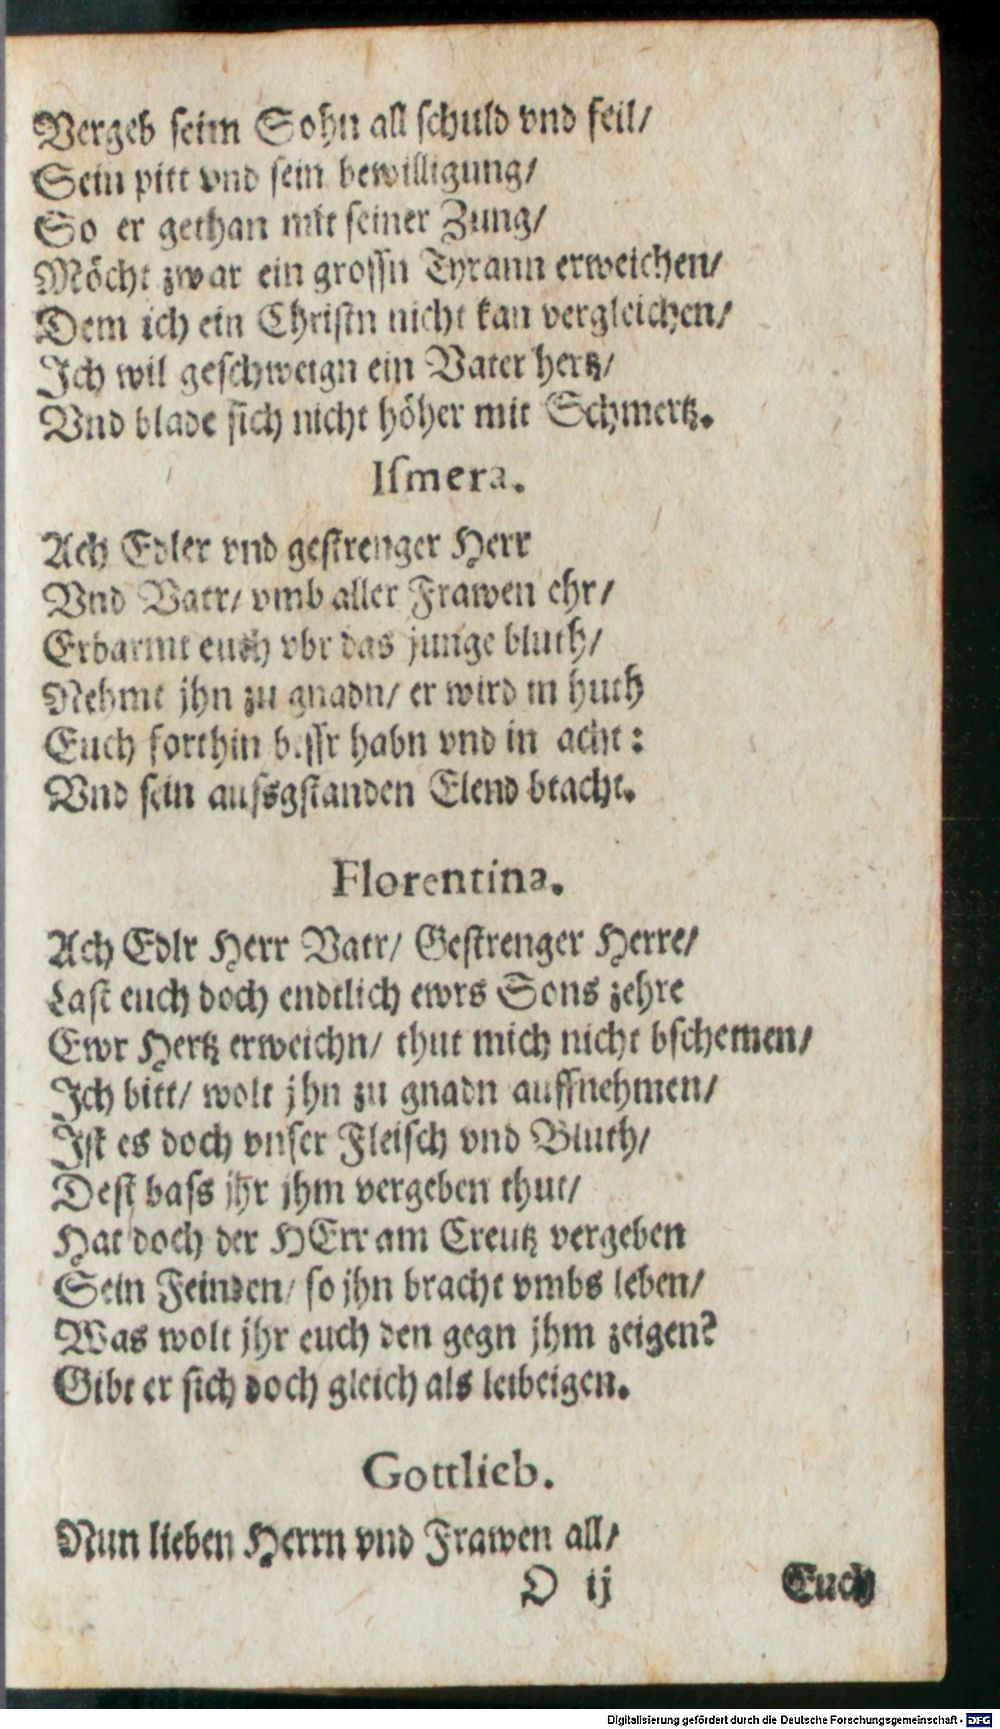 Vergeb seim Sohn all schuld vnd feil/
Sein pitt vnd sein bewilligung/
So er gethan mit seiner Zung/
Möcht zwar ein grossn Tyrann erweichen/
Dem ich ein Christn nicht kan vergleichen/
Ich wil geschweign ein Vater hertz/
Vnd blade sich nicht höher mit Schmertz.
Ismera.
Ach Edler vnd gestrenger Herr
Vnd Vatr/ vmb aller Frawen ehr/
Erbarmt euch vbr das junge bluth/
Nehmt jhn zu gnadn/ er wird in huth
Euch forthin bessr habn vnd in acht:
Vnd sein aussgstanden Elend btacht.
Florentina.
Ach Edlr Herr Vatr/ Gestrenger Herre/
Last euch doch endtlich ewrs Sons zehre
Ewr Hertz erweichn/ thut mich nicht bschemen/
Ich bitt/ wolt jhn zu gnadn auffnehmen/
Ist es doch vnser Fleisch vnd Bluth/
Dest bass jhr jhm vergeben thut/
Hat doch der HErr am Creutz vergeben
Sein Feinden/ so jhn bracht vmbs leben/
Was wolt jhr euch den gegn jhm zeigen?
Gibt er sich doch gleich als leibeigen.
Gottlieb.
Nun lieben Herrn vnd Frawen all/
D ij Euch
Digitalisierung gefördert durch die Deutsche Forschungsgemeinschaft - DFG